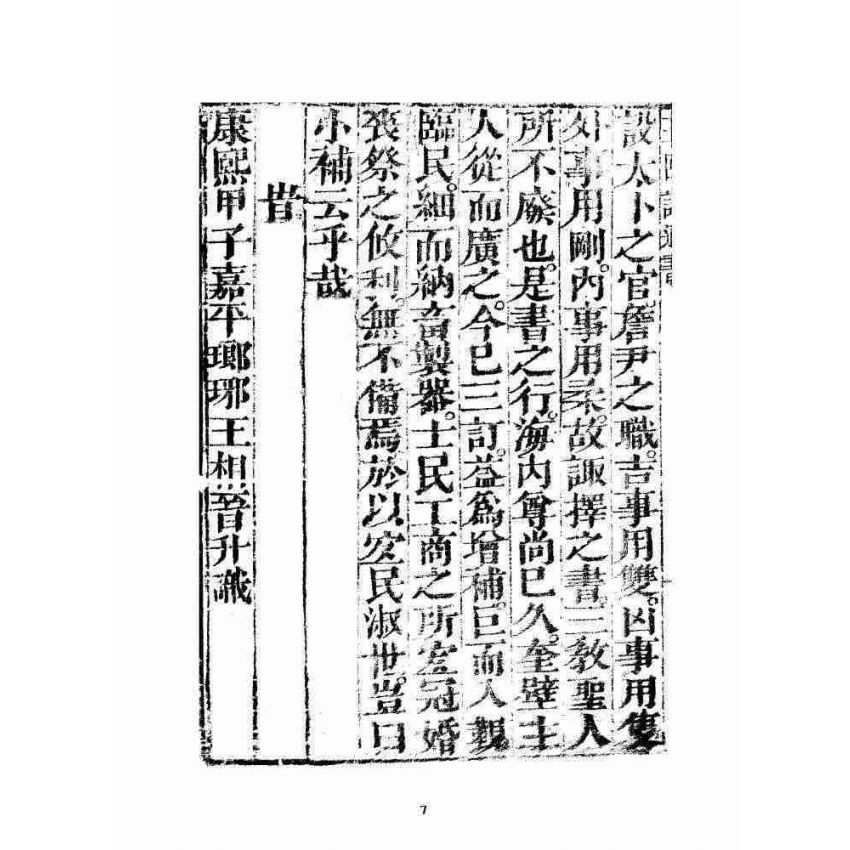 設太卜之官詹尹之職。吉事用雙。凶事用隻
外事用剛。內事用柔。故諏擇之書。三敎聖人
所不廢也。是書之行。海內尊尚已久。奎壁主
人從而廣之。今已三訂。益爲增補。巨而入覲
臨民。細而納畜製器。士民工商之所宐冠婚
喪祭之攸利。無不備焉於以安民淑世。豈曰
小補云乎哉
旹
康熙甲子嘉平瑯琊王相晉升識
7